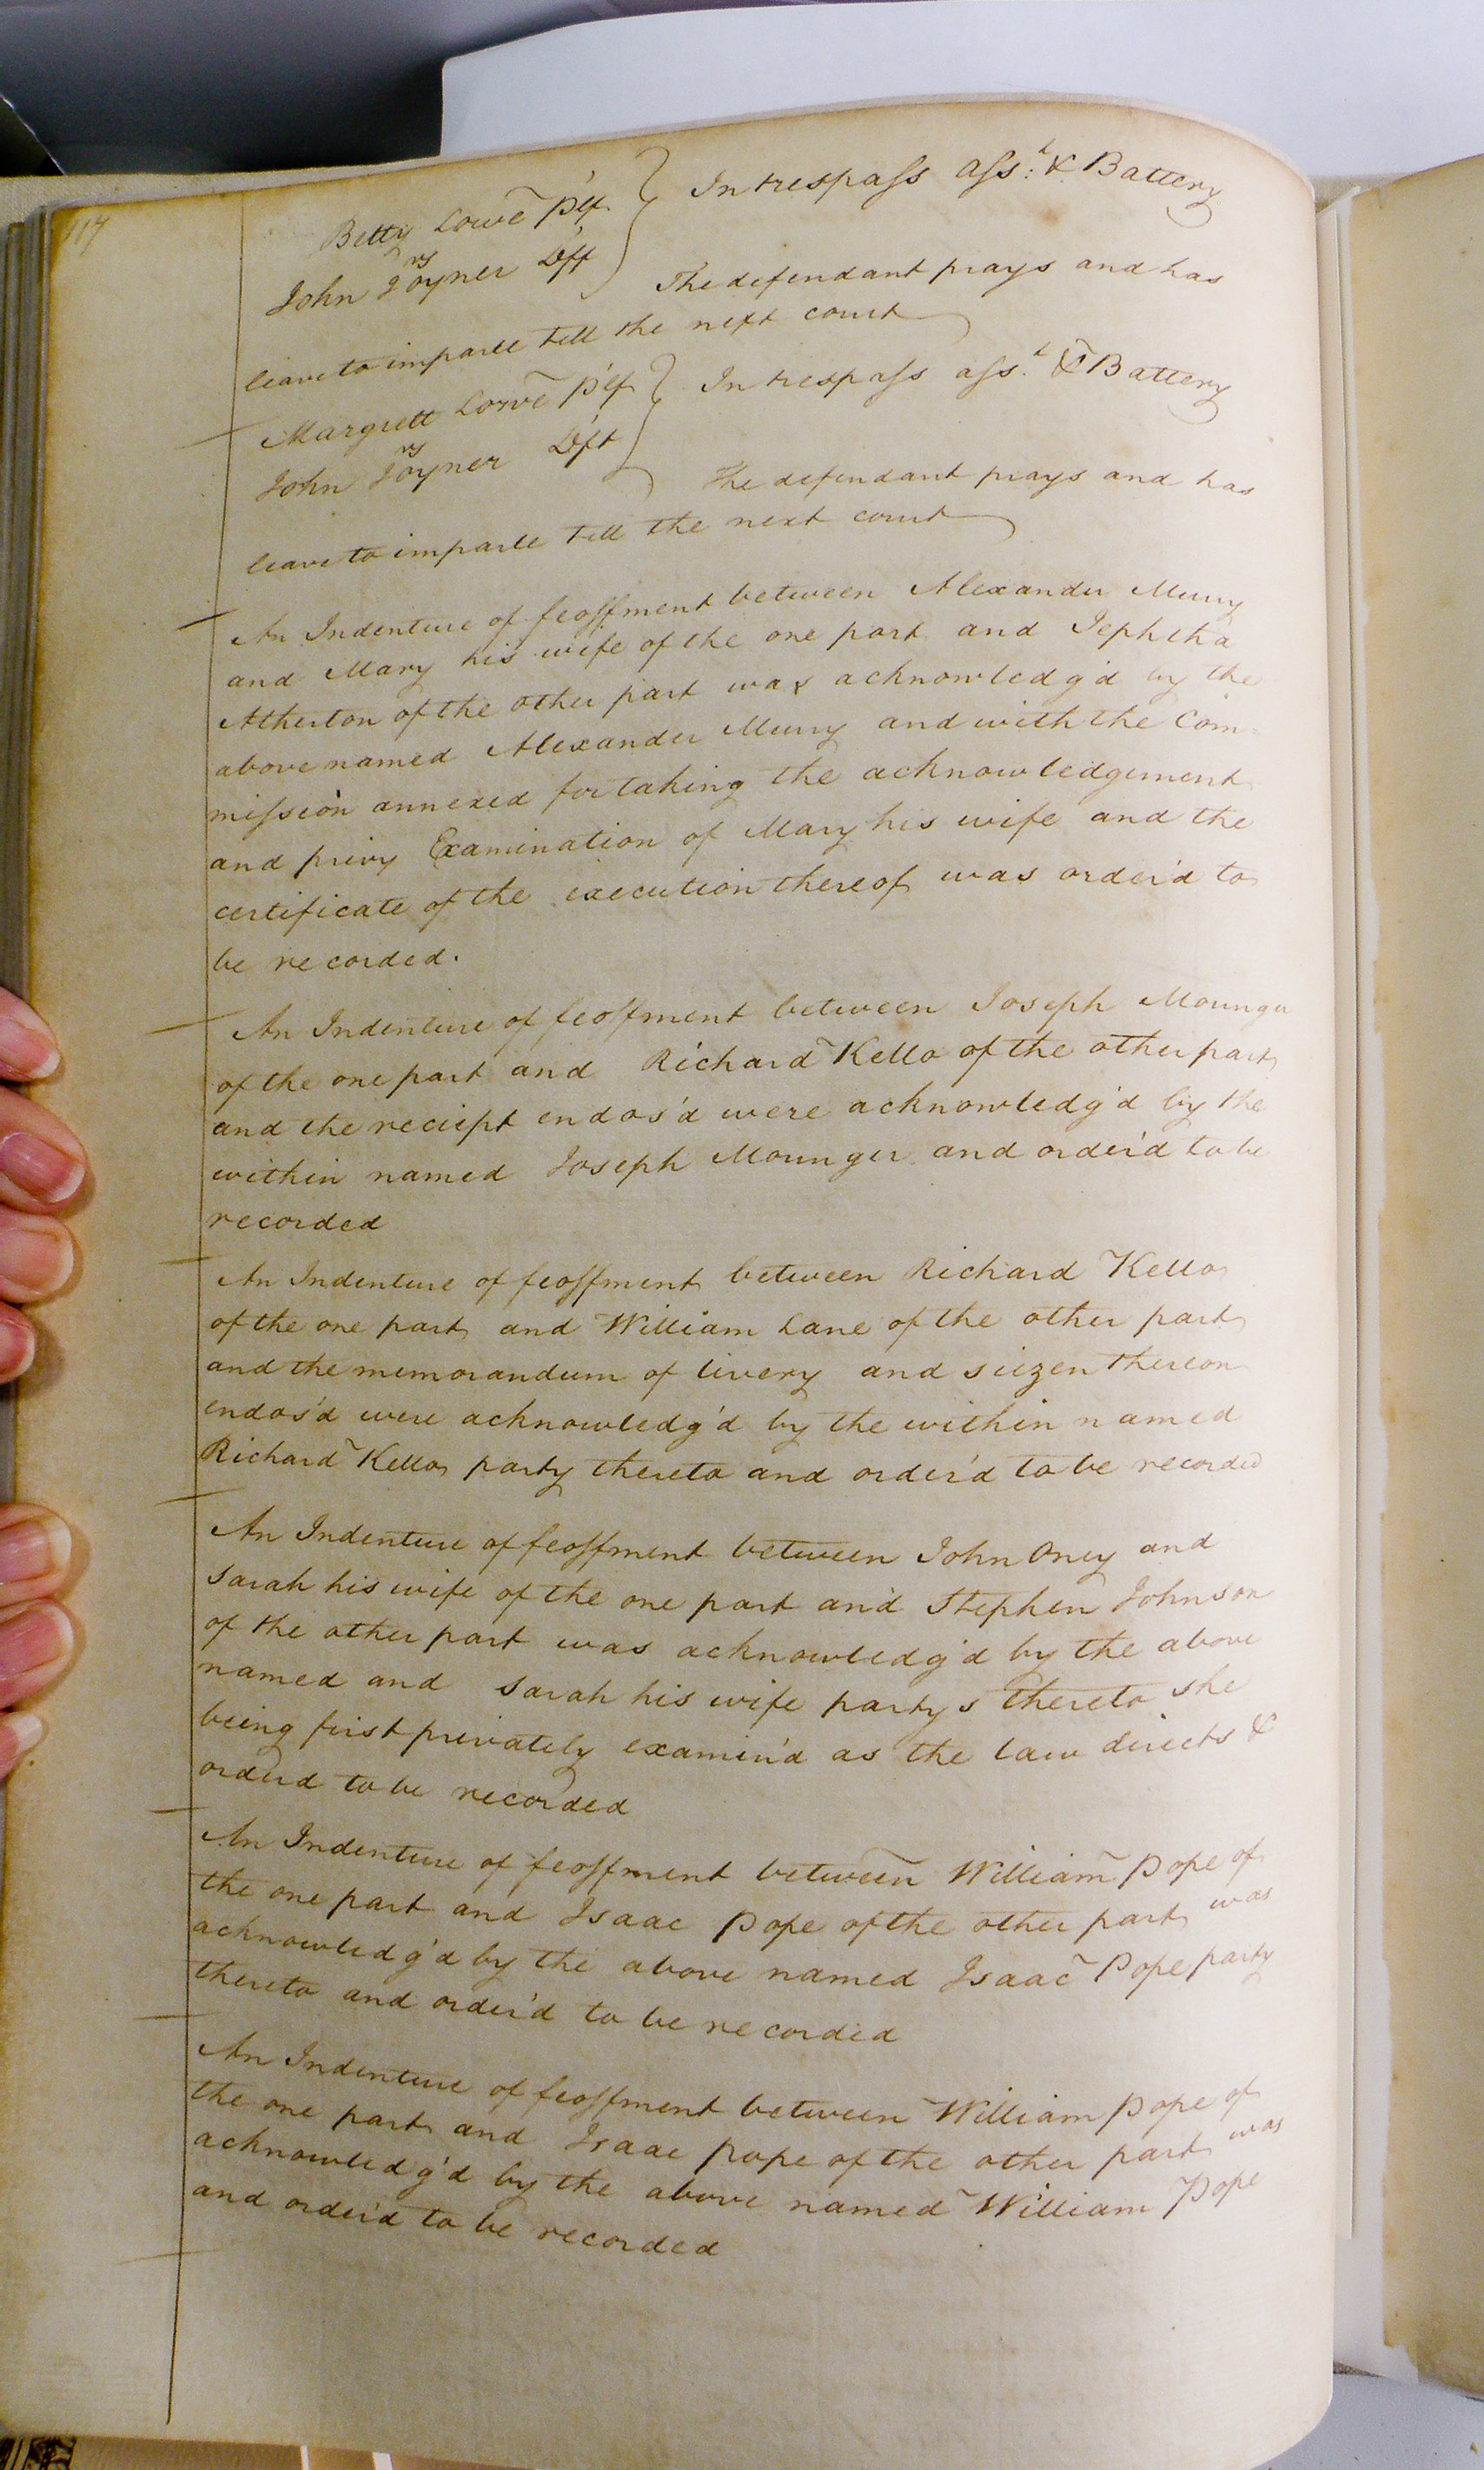 117
Betty Lowe Plf. } In trespass Asst. & Battery
vs
John Joyner Dft
The defendant prays and has
leave to imparle till the next court
Margrett Lowe Plf } In trespass asst. & Battery
vs
John Joyner Dft
The defendant prays and has
leave to imparle till the next court
An Indenture of feoffment between Alexander Murry
and Mary his wife of the one part and Jephtha
Atherton of the other part was acknowledg'd by the
above named Alexander Murry and with the Com=
mission annexed for taking the acknowledgement
and privy Examination of Mary his wife and the
certificate of the execution thereof was order'd to
be recorded.
An Indenture of feoffment between Joseph Mounger
of the one part and Richard Kello of the other part
and the reciept endos'd were acknowledg'd by the
within named Joseph Mounger and order'd to be
recorded
An Indenture of feoffment between Richard Kello
of the one part and William Lane of the other part
and the memorandum of livery and siezen thereon
endos'd were acknowledg'd by the within named
Richard Kello party thereto and order'd to be recorded
An Indenture of feoffment between John Oney and
Sarah his wife of the one part and Stephen Johnson
of the other part was acknowledg'd by the above
named and Sarah his wife partys thereto she
being first privately examin'd as the law directs &
orderd to be recorded
An Indenture of feoffment between William Pope of
the one part and Isaac Pope of the other part was
acknowledg'd by the above named Isaac Pope party
thereto and order'd to be recorded
An Indenture of feoffment between William Pope of
the one part and Isaac Pope of the other part was
acknowledg'd by the above named William Pope
and order'd to be recorded